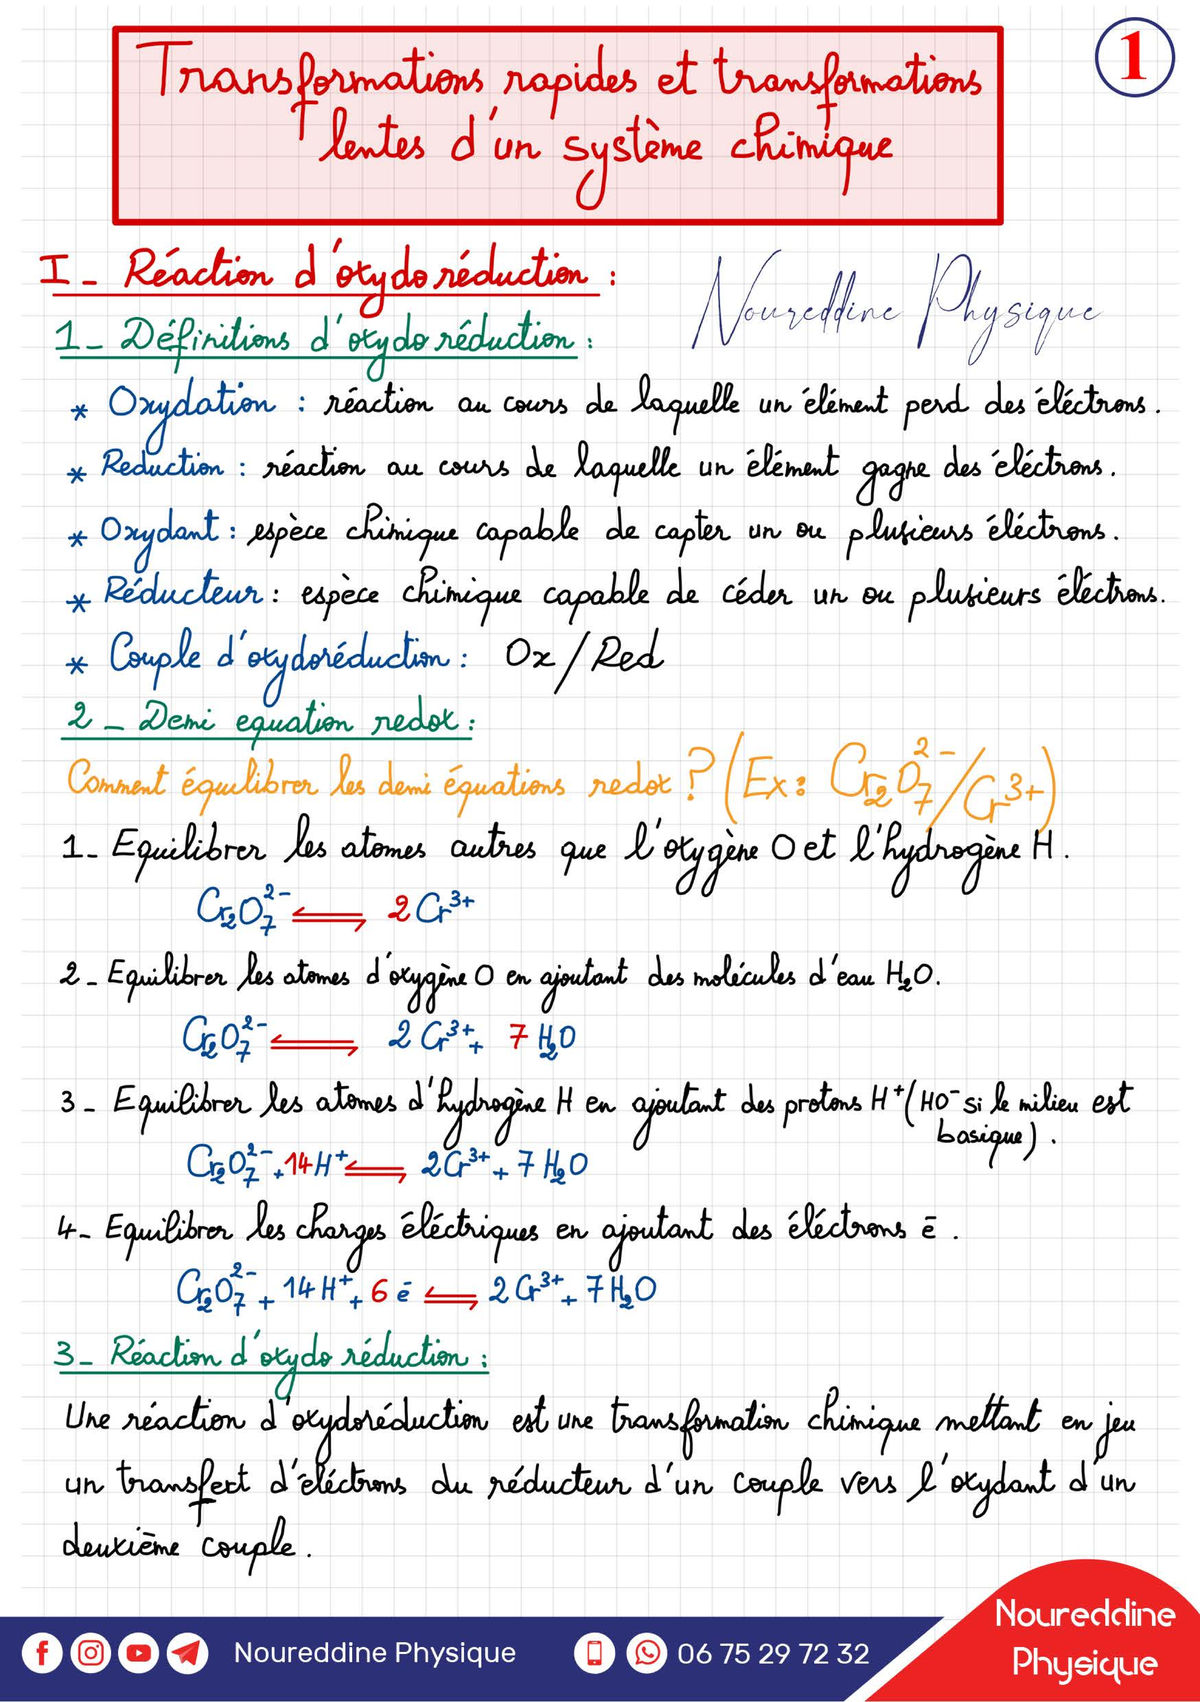 1
Transformations rapides et transformations
lentes d'un système chimique
I - Réaction d'oxydoréduction :
Noureddine Physique
1 - Définitions d'oxydoréduction :
* Oxydation : réaction au cours de laquelle un élément perd des éléctrons.
* Reduction : réaction au cours de laquelle un élément gagne des éléctrons.
* Oxydant : espèce chimique capable de capter un ou plusieurs éléctrons.
* Réducteur : espèce chimique capable de céder un ou plusieurs éléctrons.
* Couple d'oxydoréduction : Ox/Red
2 - Demi equation redox :
Comment équilibrer les demi équations redox ? (Ex : Cr₂O₇²⁻/Cr³⁺)
1 - Equilibrer les atomes autres que l'oxygène O et l'hydrogène H.
Cr₂O₇²⁻ ⇌ 2 Cr³⁺
2 - Equilibrer les atomes d'oxygène O en ajoutant des molécules d'eau H₂O.
Cr₂O₇²⁻ ⇌ 2 Cr³⁺ + 7 H₂O
3 - Equilibrer les atomes d'hydrogène H en ajoutant des protons H⁺ (HO⁻ si le milieu est
basique).
Cr₂O₇²⁻ + 14 H⁺ ⇌ 2 Cr³⁺ + 7 H₂O
4 - Equilibrer les charges éléctriques en ajoutant des éléctrons ē.
Cr₂O₇²⁻ + 14 H⁺ + 6 ē ⇌ 2 Cr³⁺ + 7 H₂O
3 - Réaction d'oxydoréduction :
Une réaction d'oxydoréduction est une transformation chimique mettant en jeu
un transfert d'éléctrons du réducteur d'un couple vers l'oxydant d'un
deuxième couple.
Noureddine Physique 06 75 29 72 32
Noureddine
Physique